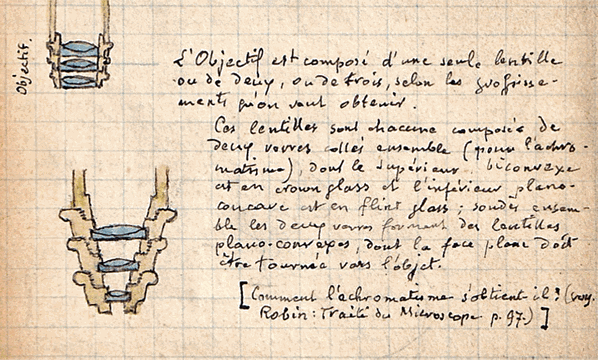 Objectif.
L'Objectif est composé d'une seule lentille
ou de deux, ou de trois, selon les grossisse-
ments qu'on veut obtenir.
Ces lentilles sont chacune composée de
deux verres collés ensemble (pour l'achro-
matisme), dont le supérieur biconvexe
est en crown glass et l'inférieur plano-
concave est en flint glass; soudés ensem-
ble les deux verres forment des lentilles
plano-convexes, dont la face plane doit
être tournée vers l'objet.
[Comment l'achromatisme s'obtient-il? (voy.
Robin: Traité du Microscope p. 97.)]